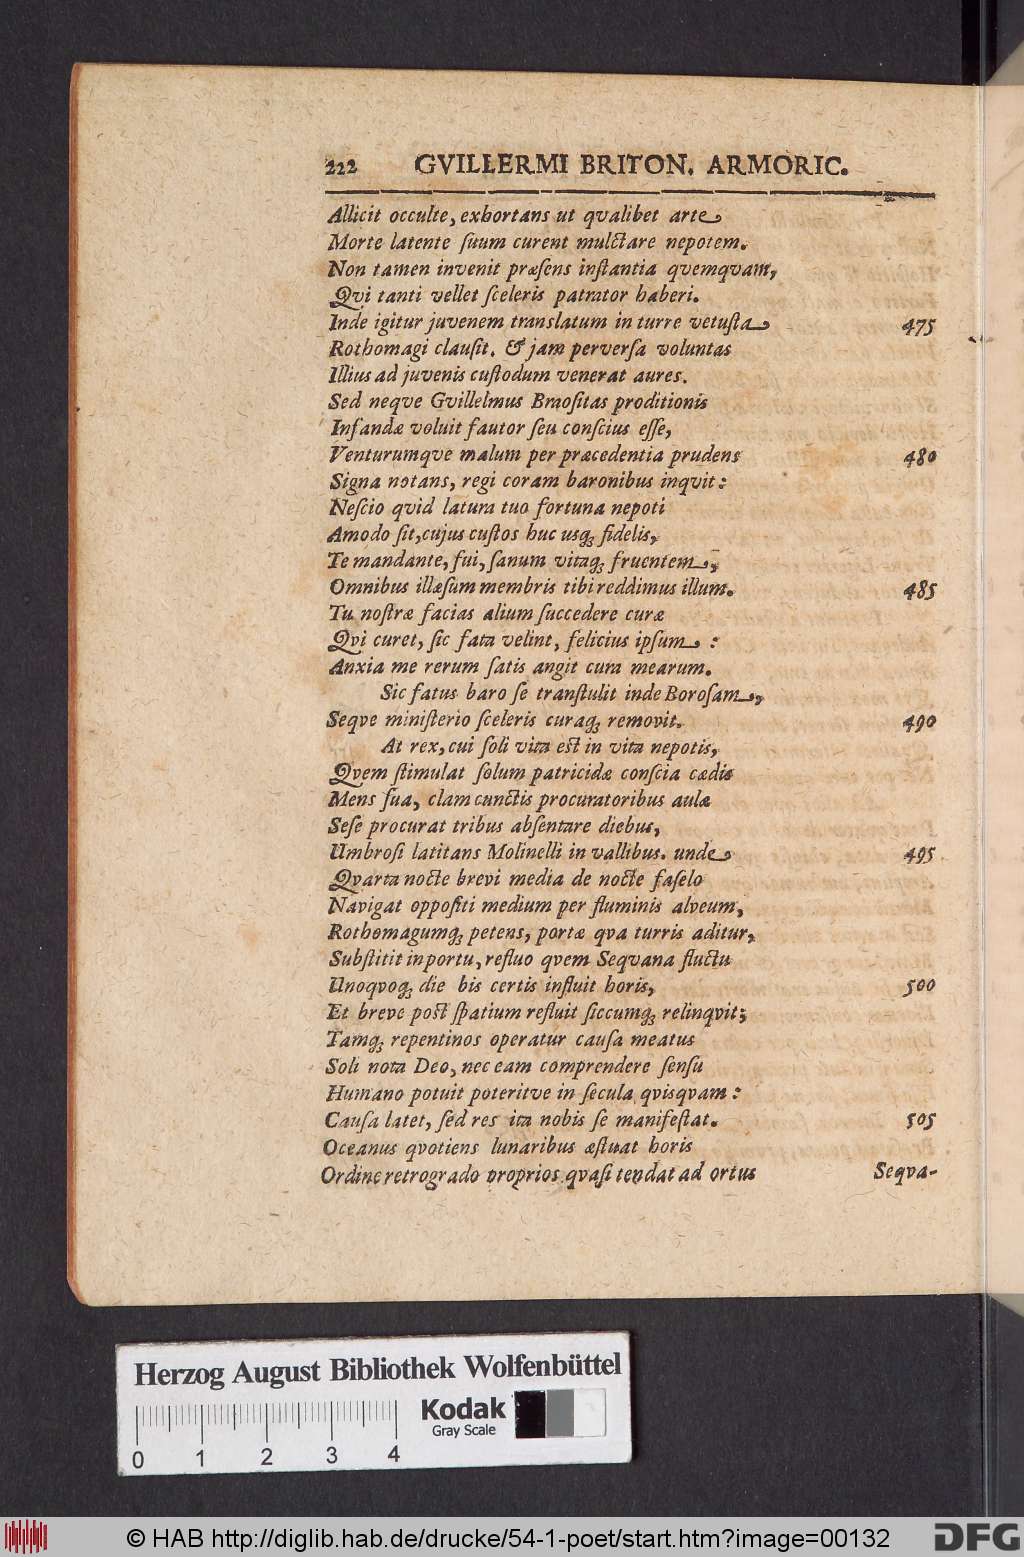 222 GVILLERMI BRITON. ARMORIC.
Allicit occulte, exhortans ut qvalibet arte
Morte latente ſuum curent mulctare nepotem.
Non tamen invenit præſens inſtantia qvemqvam,
Qvi tanti vellet ſceleris patrator haberi.
Inde igitur juvenem translatum in turre vetuſta 475
Rothomagi clauſit. & jam perverſa voluntas
Illius ad juvenis cuſtodum venerat aures.
Sed neqve Gvillelmus Braoſitas proditionis
Infandæ voluit fautor ſeu conſcius eſſe,
Venturumqve malum per præcedentia prudens 480
Signa notans, regi coram baronibus inqvit:
Neſcio qvid latura tuo fortuna nepoti
Amodo ſit, cujus cuſtos huc usq; fidelis,
Te mandante, fui, ſanum vitaq; fruentem,
Omnibus illæſum membris tibi reddimus illum. 485
Tu noſtræ facias alium ſuccedere curæ
Qvi curet, ſic fata velint, felicius ipſum :
Anxia me rerum ſatis angit cura mearum.
Sic fatus baro ſe tranſtulit inde Boroſam,
Seqve miniſterio ſceleris curaq; removit. 490
At rex, cui ſoli vita est in vita nepotis,
Qvem ſtimulat ſolum patricidæ conſcia cædis
Mens ſua, clam cunctis procuratoribus aulæ
Seſe procurat tribus abſentare diebus,
Umbroſi latitans Molinelli in vallibus. unde 495
Qvarta nocte brevi media de nocte faſelo
Navigat oppoſiti medium per fluminis alveum,
Rothomagumq; petens, portæ qva turris aditur,
Subſtitit in portu, refluo qvem Seqvana fluctu
Unoqvoq; die bis certis influit horis, 500
Et breve post ſpatium refluit ſiccumq; relinqvit;
Tamq; repentinos operatur cauſa meatus
Soli nota Deo, nec eam comprendere ſenſu
Humano potuit poteritve in ſecula qvisqvam:
Cauſa latet, ſed res ita nobis ſe manifeſtat. 505
Oceanus qvotiens lunaribus æſtuat horis
Ordine retrogrado proprios qvaſi tendat ad ortus Seqva-
Herzog August Bibliothek Wolfenbüttel
Kodak
Gray Scale
0 1 2 3 4
© HAB http://diglib.hab.de/drucke/54-1-poet/start.htm?image=00132 DFG